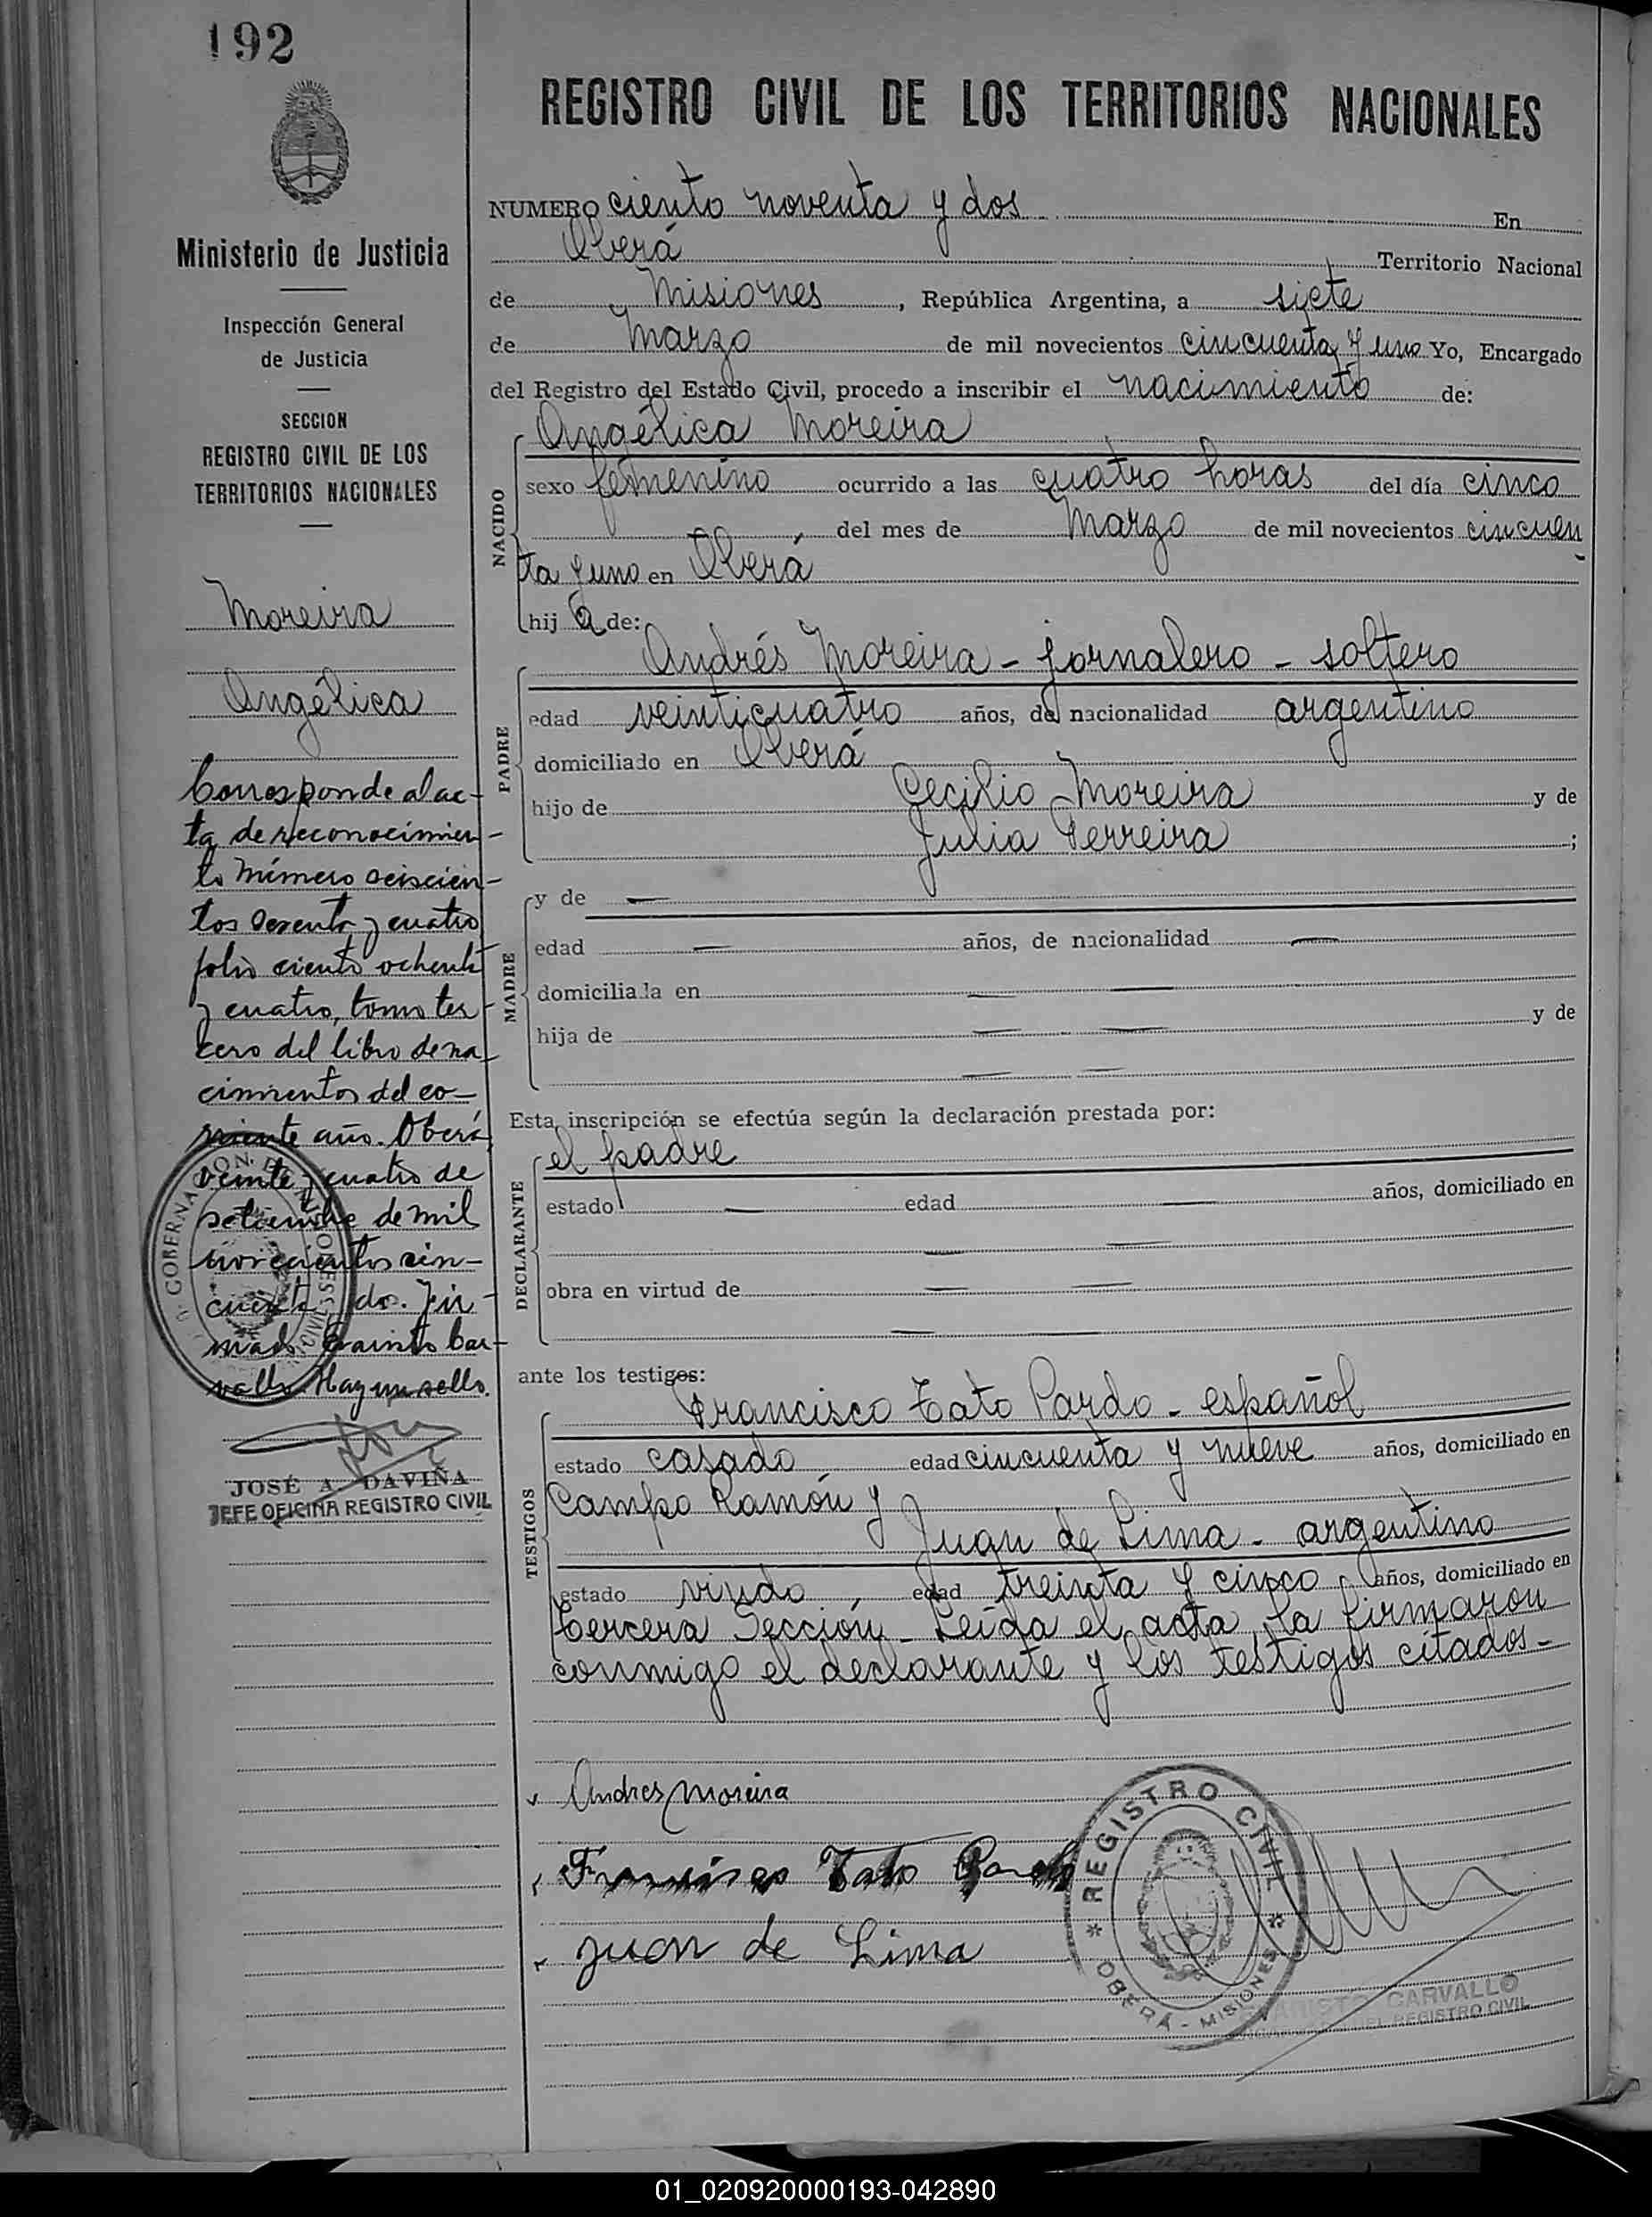 192
REGISTRO CIVIL DE LOS TERRITORIOS NACIONALES
Ministerio de Justicia
Inspección General
de Justicia
SECCION
REGISTRO CIVIL DE LOS
TERRITORIOS NACIONALES
Moreira
Angélica
Corresponde al ac-
ta de reconocimien-
to número seiscien-
tos sesenta y cuatro
folio ciento ochenta
y cuatro, tomo ter-
cero del libro de na-
cimientos del co-
rriente año. Oberá,
veinte y cuatro de
setiembre de mil
novecientos cin-
cuenta y dos. Fir-
mado Evaristo Car-
vallo. Hay un sello.
JOSÉ A. DAVIÑA
JEFE OFICINA REGISTRO CIVIL
NUMERO ciento noventa y dos En
Oberá Territorio Nacional
de Misiones, República Argentina, a siete
de Marzo de mil novecientos cincuenta y uno Yo, Encargado
del Registro del Estado Civil, procedo a inscribir el nacimiento de:
NACIDO
Angélica Moreira
sexo femenino ocurrido a las cuatro horas del día cinco
del mes de Marzo de mil novecientos cincuen
ta y uno en Oberá
hij a de:
PADRE
Andrés Moreira - jornalero - soltero
edad veinticuatro años, de nacionalidad argentino
domiciliado en Oberá
hijo de Cecilio Moreira y de
Julia Ferreira ;
MADRE
y de —
edad — años, de nacionalidad —
domiciliada en — —
hija de — — y de
— —
Esta inscripción se efectúa según la declaración prestada por:
DECLARANTE
el padre
estado — edad — años, domiciliado en
— —
obra en virtud de — —
— —
ante los testigos:
TESTIGOS
Francisco Tato Pardo - español
estado casado edad cincuenta y nueve años, domiciliado en
Campo Ramón y
Juan de Lima - argentino
estado viudo edad treinta y cinco años, domiciliado en
Tercera Sección - Leída el acta, la firmaron
conmigo el declarante y los testigos citados -
Andres Moreira
Francisco Tato Pardo
Juan de Lima
REGISTRO CIVIL
OBERÁ - MISIONES
EVARISTO CARVALLO
DEL REGISTRO CIVIL
01_020920000193-042890